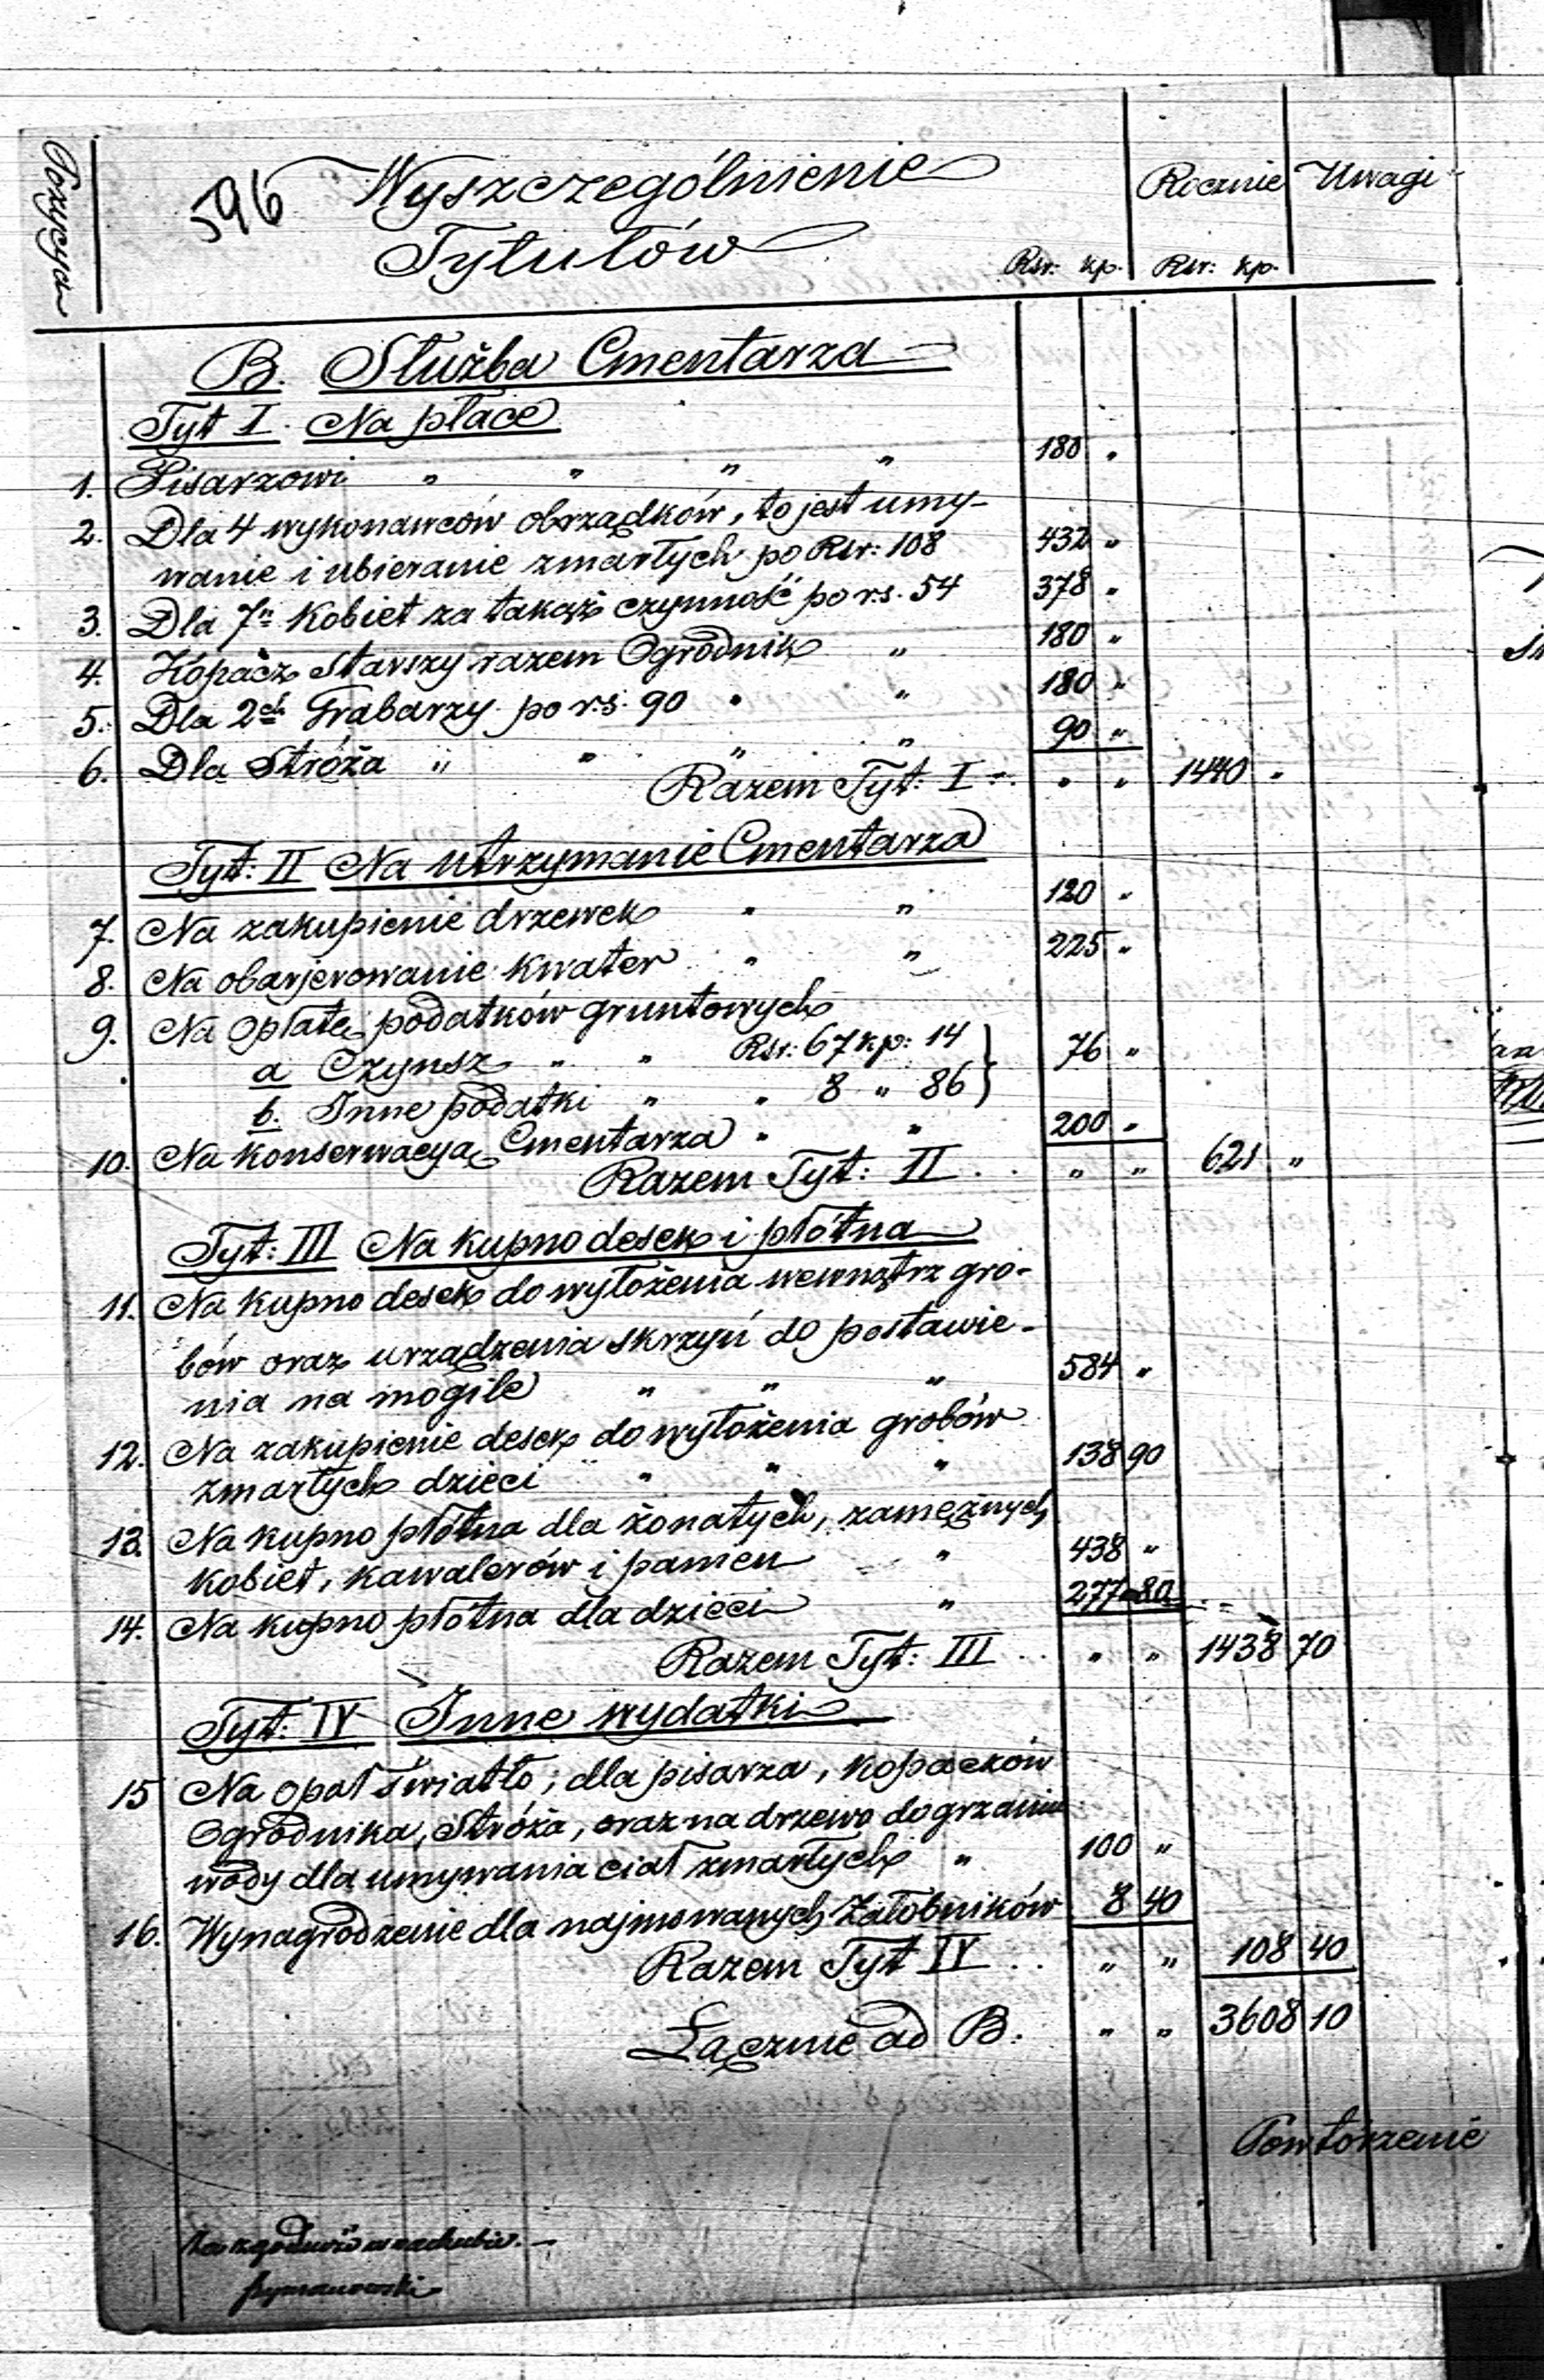 Pozycya
596 Wyszczególnienie Rocznie Uwagi
Tytułów
Rsr: kp. Rsr: kp.
B. Służba Cmentarza
Tyt I. Na płace
1. Pisarzowi " " " " 180 "
2. Dla 4 wykonawców obrządków, to jest umy-
wanie i ubieranie zmarłych po Rsr: 108 432 "
3. Dla 7u kobiet za takąż czynność po rs. 54 378 "
4. Kopacz Starszy razem Ogrodnik " 180 "
5. Dla 2ch Grabarzy po rs. 90 " " 180 "
6. Dla Stróża " " " " 90 "
Razem Tyt: I " " 1440 "
Tyt: II Na utrzymanie Cmentarza
7. Na zakupienie drzewek " " 120 "
8. Na obarjerowanie kwater " " 225 "
9. Na opłatę podatków gruntowych
a Czynsz " " Rsr: 67 kp: 14 } 76 "
b. Inne podatki " " 8 " 86 }
10. Na konserwacyą Cmentarza " " 200 "
Razem Tyt: II . . " " 621 "
Tyt: III Na kupno desek i płótna
11. Na kupno desek do wyłożenia wewnątrz gro-
bów oraz urządzenia skrzyń do postawie-
nia na mogile " " " 584 "
12. Na zakupienie desek do wyłożenia grobów
zmarłych dzieci " " " 138 90
13. Na kupno płótna dla żonatych, zamężnych
kobiet, kawalerów i panien " 438 "
14. Na kupno płótna dla dzieci " 277 80
Razem Tyt: III . . " " 1438 70
Tyt: IV Inne wydatki
15 Na opał światło; dla pisarza, kopaczów
Ogrodnika, Stróża, oraz na drzewo do grzania
wody dla umywania ciał zmarłych " 100 "
16. Wynagrodzenie dla najmowanych Żałobników 8 40
Razem Tyt IV . . " " 108 40
Łącznie ad B. " " 3608 10
Powtórzenie
Za zgodność w rachubie. -
Szymanowski